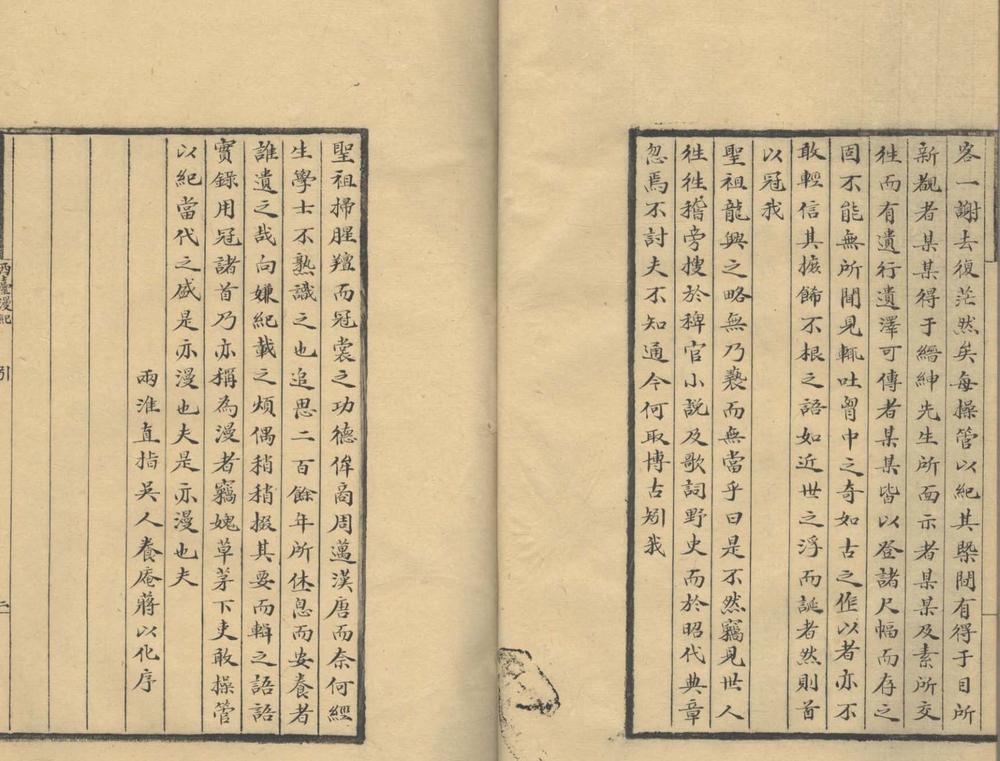 客一謝去復茫然矣每操管以紀其槩間有得于目所
新觀者某某得于縉紳先生所面示者某某及素所交
徃而有遺行遺澤可傳者某某皆以登諸尺幅而存之
固不能無所聞見輒吐胷中之奇如古之作以者亦不
敢輕信其摭餙不根之語如近世之浮而誕者然則首
以冠我
聖祖龍興之略無乃褻而無當乎曰是不然竊見世人
徃徃稽旁搜於稗官小說及歌詞野史而於昭代典章
忽焉不討夫不知通今何取博古矧我
聖祖掃腥羶而冠裳之功德侔商周邁漢唐而奈何經
生學士不熟識之也追思二百餘年所休息而安養者
誰遺之哉向嫌紀載之煩偶稍稍掇其要而輯之語語
實錄用冠諸首乃亦稱為漫者竊媿草茅下吏敢操管
以紀當代之盛是亦漫也夫是亦漫也夫
兩淮直指吳人養庵蔣以化序
西臺漫紀
引
二